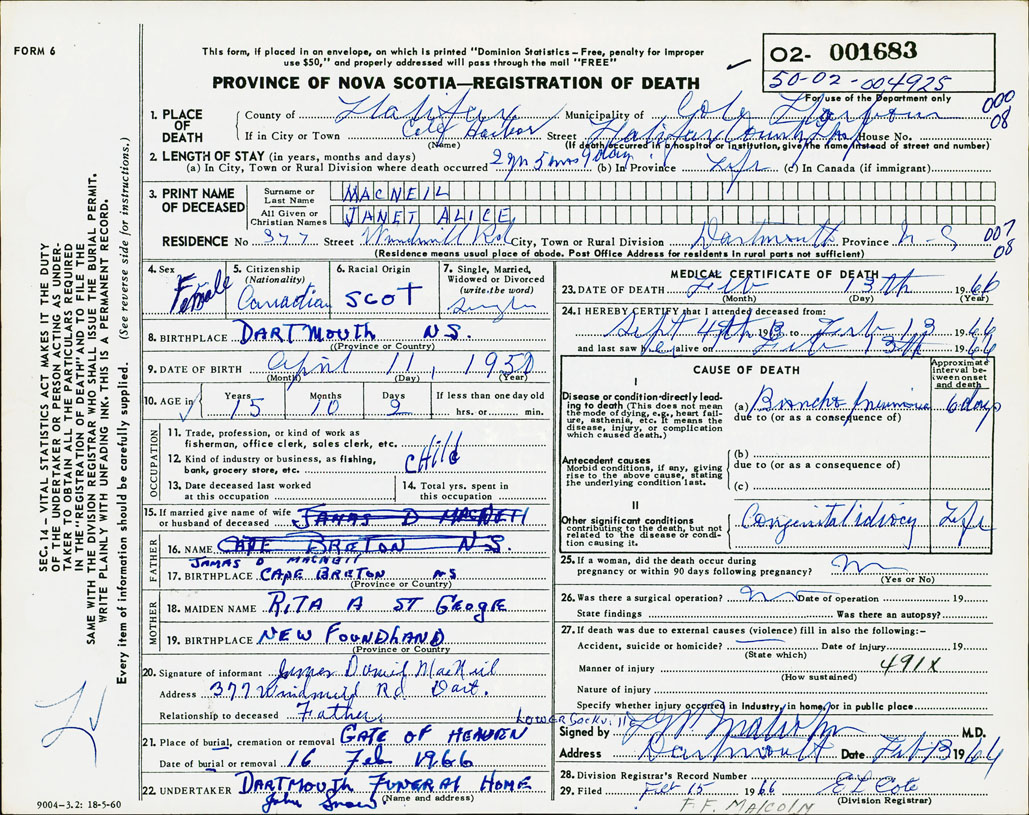 FORM 6
This form, if placed in an envelope, on which is printed "Dominion Statistics – Free, penalty for improper
use $50," and properly addressed will pass through the mail "FREE"
PROVINCE OF NOVA SCOTIA—REGISTRATION OF DEATH
O2- 001683
50-02-004925
For use of the Department only
000
08
1. PLACE OF DEATH
County of Halifax Municipality of Cole Harbour
If in City or Town Cole Harbor Street Halifax County Hospital House No.
(Name) (If death occurred in a hospital or institution, give the name instead of street and number)
2. LENGTH OF STAY (in years, months and days)
(a) In City, Town or Rural Division where death occurred 2 yrs 5 mos 9 days (b) In Province Life (c) In Canada (if immigrant)
3. PRINT NAME OF DECEASED
Surname or Last Name MACNEIL
All Given or Christian Names JANET ALICE
RESIDENCE No 377 Street Windmill Rd City, Town or Rural Division Dartmouth Province N-S
007
08
(Residence means usual place of abode. Post Office Address for residents in rural parts not sufficient)
4. Sex Female
5. Citizenship (Nationality) Canadian
6. Racial Origin SCOT
7. Single, Married, Widowed or Divorced (write the word) Single
8. BIRTHPLACE DARTMOUTH N S.
(Province or Country)
9. DATE OF BIRTH April 11, 1950
(Month) (Day) (Year)
10. AGE in Years 15 Months 10 Days 2 If less than one day old hrs. or min.
OCCUPATION
11. Trade, profession, or kind of work as fisherman, office clerk, sales clerk, etc.
12. Kind of industry or business, as fishing, bank, grocery store, etc. CHILD
13. Date deceased last worked at this occupation
14. Total yrs. spent in this occupation
15. If married give name of wife or husband of deceased JAMAS D MACNEIL
FATHER
16. NAME CAPE BRETON N S.
JAMAS D MACNEIL
17. BIRTHPLACE CAPE BRETON NS
(Province or Country)
MOTHER
18. MAIDEN NAME RITA A ST GEOGE
19. BIRTHPLACE NEW FOUNDLAND
(Province or Country)
20. Signature of informant James Daniel MacNeil
Address 377 Windmill Rd Dart.
Relationship to deceased Father.
21. Place of burial, cremation or removal GATE OF HEAVEN
LOWER Sackville
Date of burial or removal 16 Feb 1966
22. UNDERTAKER DARTMOUTH FUNERAL HOME
John Snow
(Name and address)
MEDICAL CERTIFICATE OF DEATH
23. DATE OF DEATH Feb 13th 1966
(Month) (Day) (Year)
24. I HEREBY CERTIFY that I attended deceased from:
Sept 4th 1963 to Feb 13 1966
and last saw her alive on Feb 13th 1966
CAUSE OF DEATH
Approximate interval between onset and death
I
Disease or condition directly leading to death (This does not mean the mode of dying, e.g., heart failure, asthenia, etc. It means the disease, injury, or complication which caused death.)
(a) Broncho pneumonia 6 days
due to (or as a consequence of)
Antecedent causes
Morbid conditions, if any, giving rise to the above cause, stating the underlying condition last.
(b)
due to (or as a consequence of)
(c)
II
Other significant conditions contributing to the death, but not related to the disease or condition causing it.
Congenital idiocy Life
25. If a woman, did the death occur during pregnancy or within 90 days following pregnancy? No
(Yes or No)
26. Was there a surgical operation? No Date of operation 19
State findings Was there an autopsy?
27. If death was due to external causes (violence) fill in also the following:–
Accident, suicide or homicide? Date of injury 19
(State which)
Manner of injury 491X
(How sustained)
Nature of injury
Specify whether injury occurred in industry, in home, or in public place
Signed by F F Malcolm M.D.
Address Dartmouth Date Feb 13 1966
28. Division Registrar's Record Number
29. Filed Feb 15 1966 E L Cote
(Division Registrar)
F. F. MALCOLM
SEC. 14 – VITAL STATISTICS ACT MAKES IT THE DUTY
OF THE UNDERTAKER OR PERSON ACTING AS UNDER-
TAKER TO OBTAIN ALL THE PARTICULARS REQUIRED
IN THE "REGISTRATION OF DEATH" AND TO FILE THE
SAME WITH THE DIVISION REGISTRAR WHO SHALL ISSUE THE BURIAL PERMIT.
WRITE PLAINLY WITH UNFADING INK. THIS IS A PERMANENT RECORD.
Every item of information should be carefully supplied. (See reverse side for instructions.)
9004-3.2: 18-5-60